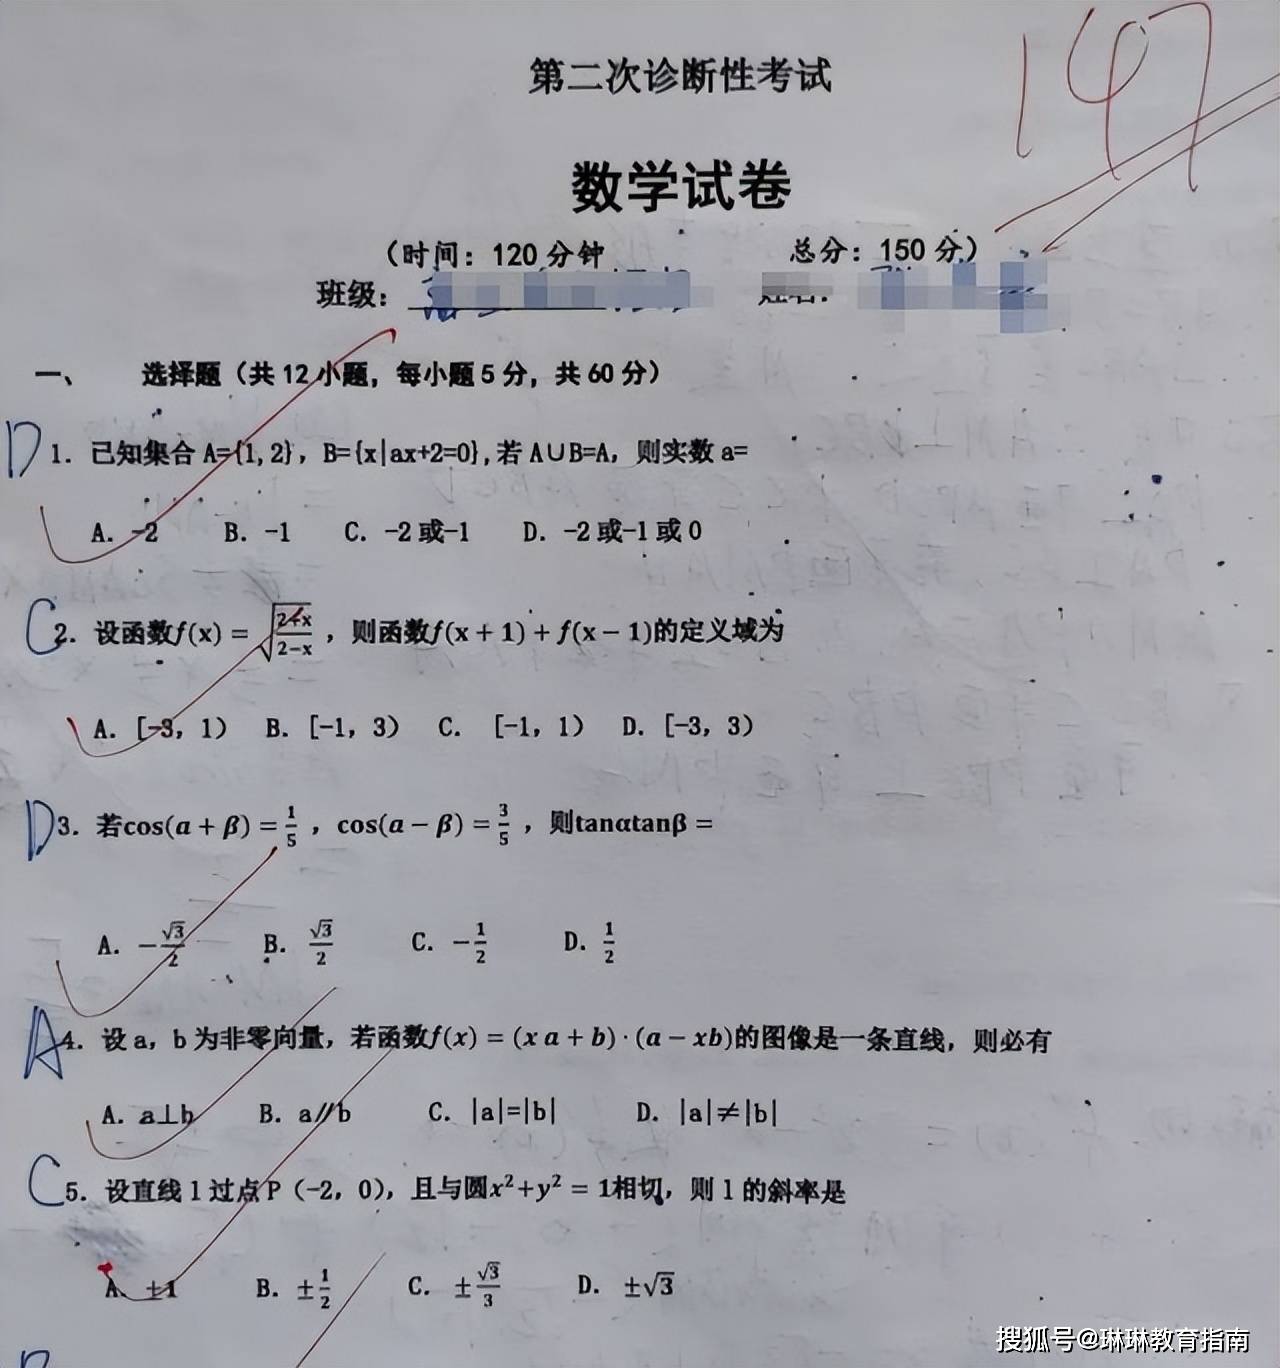 147
第二次诊断性考试
数学试卷
（时间：120 分钟 总分：150 分）
班级：
一、 选择题（共 12 小题，每小题 5 分，共 60 分）
D 1. 已知集合 A={1,2}，B={x|ax+2=0},若 A∪B=A，则实数 a=
A. -2 B. -1 C. -2 或-1 D. -2 或-1 或 0
C 2. 设函数f(x) = √((2+x)/(2−x))，则函数f(x + 1) + f(x − 1)的定义域为
A. [-3，1） B. [-1，3） C. [-1，1） D. [-3，3）
D 3. 若cos(α + β) = 1/5，cos(α − β) = 3/5，则tanαtanβ =
A. −√3/2 B. √3/2 C. −1/2 D. 1/2
A 4. 设 a，b 为非零向量，若函数f(x) = (x a + b)·(a − xb)的图像是一条直线，则必有
A. a⊥b B. a∥b C. |a|=|b| D. |a|≠|b|
C 5. 设直线 l 过点 P（-2，0），且与圆x²+y² = 1相切，则 l 的斜率是
A. ±1 B. ±1/2 C. ±√3/3 D. ±√3
搜狐号@琳琳教育指南